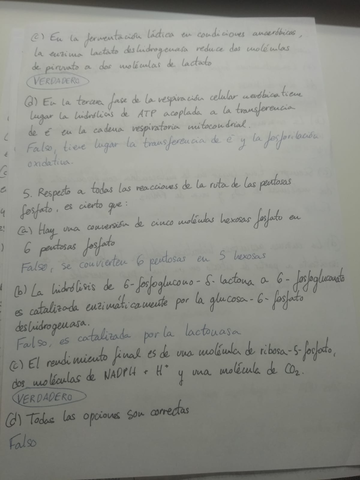 (c) En la fermentación láctica en condiciones anaeróbicas,
la enzima lactato deshidrogenasa reduce dos moléculas
de piruvato a dos moléculas de lactato
VERDADERO
(d) En la tercera fase de la respiración celular aeróbica tiene
lugar la hidrólisis de ATP acoplada a la transferencia
de é en la cadena respiratoria mitocondrial.
Falso, tiene lugar la transferencia de é y la fosforilación
oxidativa.
5. Respecto a todas las reacciones de la ruta de las pentosas
fosfato, es cierto que:
(a) Hay una conversión de cinco moléculas hexosas fosfato en
6 pentosas fosfato
Falso, se convierten 6 pentosas en 5 hexosas
(b) La hidrólisis de 6-fosfoglucono-δ-lactona a 6-fosfogluconato
es catalizada enzimáticamente por la glucosa-6-fosfato
deshidrogenasa.
Falso, es catalizada por la lactonasa
(c) El rendimiento final es de una molécula de ribosa-5-fosfato,
dos moléculas de NADPH + H⁺ y una molécula de CO₂.
VERDADERO
(d) Todas las opciones son correctas
Falso